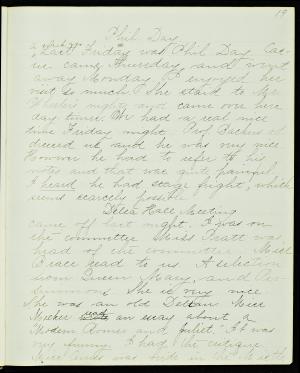 19
Phil Day
a week ago
Last Friday was Phil Day
came Thursday and went
away Monday. I enjoyed her
visit so much. She staid to Mr.
nights and came over here
day times. We had a real nice
time Friday night. Prof.
us and he was very nice
However he had to refer to his
notes and that was quite painful.
I heard he had stage fright, which
seems scarcely possible!
Delta Hall Meeting
came off last night. I was on
the committee Miss Pratt was
head of the committee. Miss
read to us. A selection
from Queen Mary, and
She is very nice
She was an old Deltan. Miss
read
an essay about a
"Modern Romeo and Juliet." It was
very funny. I had the critique
Miss was in the